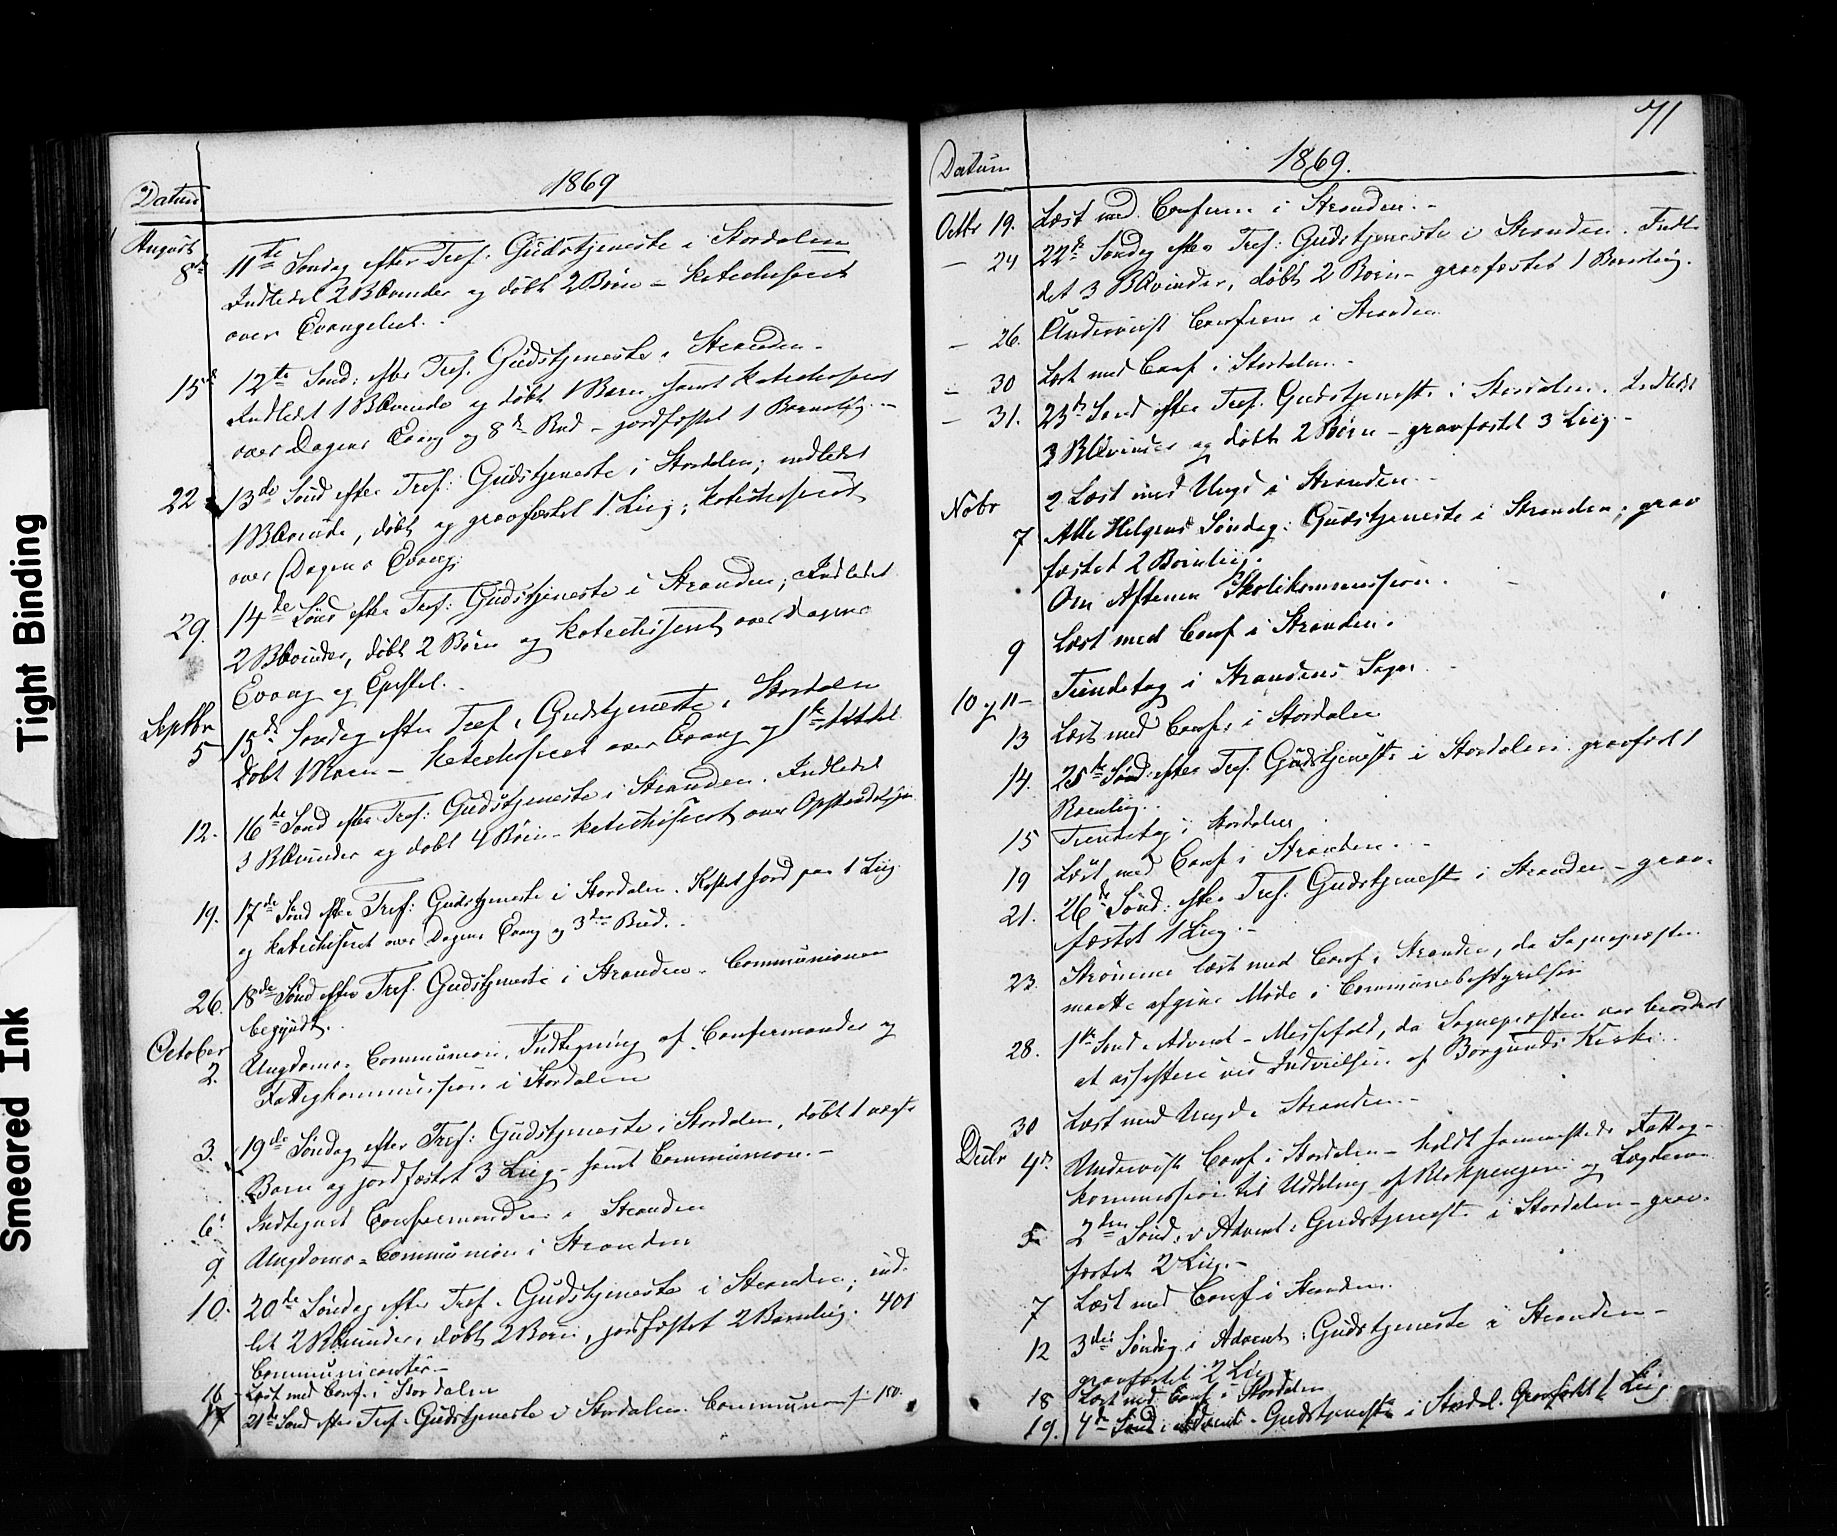 Tight Binding
Smeared Ink
Datum 1869
August
8de 11te Søndag efter Tref: Gudstjeneste i Stordalen
Indledet 2 BKvinder og døbt 2 Børn – katechiseret
over Evangeliet.
15de 12te Sønd: efter Tref. Gudstjeneste i Stranden.
Indledt 1 BKvinde og døbt 1 Barn samt katechiseret
over Dagens Evang og 8de Bud – jordfæstet 1 Barnelig. –
22 13de Sønd efter Tref: Gudstjeneste i Stordalen; indledet
1 BKvinde, døbt og gravfæstet 1 Liig; katechiseret
over Dagens Evang.
29. 14de Sønd efter Tref: Gudstjeneste i Stranden; Indledet
2 BKvinder, døbt 2 Børn og katechiseret over Dagens
Evang og Epistel.
Septbr
5 15de Søndag efter Tref. Gudstjeneste i Stordalen
døbt 1 Barn – katechiseret over Evang og 1ste
12. 16de Sønd efter Tref: Gudstjeneste i Stranden. Indledet
3 BKvinder og døbt 4 Børn – katechiseret over
19. 17de Sønd efter Tref: Gudstjeneste i Stordalen. Kastet Jord paa 1 Liig
og katechiseret over Dagens Evang og 3die Bud.
26. 18de Sønd efter Tref. Gudstjeneste i Stranden. Communionen
begyndt.
October
2. Ungdoms-Communion. Indtegning af Confirmander og
Fattigkommission i Stordalen
3. 19de Søndag efter Tref: Gudstjeneste i Stordalen, døbt 1
Barn og jordfæstet 3 Liig – samt Communion. –
6. Indtegnet Confirmander i Stranden
9. Ungdoms-Communion i Stranden
10. 20de Søndag efter Tref. Gudstjeneste i Stranden; ind-
let 2 BKvinder, døbt 2 Børn, jordfæstet 2 Barnelig. 401
Communicanter. –
16 Læst med Conf. i Stordalen
17 21de Sønd efter Tref. Gudstjeneste i Stordalen. Communion 150.
71
Datum 1869.
Octbr 19. Læst med Confirm i Stranden. –
– 24 22de Søndag efter Tref: Gudstjeneste i Stranden. Indle-
det 3 BKvinder, døbt 2 Børn – gravfæstet 1 Barnelig.
– 26. Underviist Confirm i Stranden
– 30 Læst med Conf i Stordalen. –
– 31. 23de Sønd efter Tref. Gudstjeneste i Stordalen. Indledet
3 BKvinder og døbt 2 Børn – gravfæstet 3 Liig. –
Nobr 2 Læst med Ungd i Stranden. –
7 Alle Helgens Søndag: Gudstjeneste i Stranden, grav
fæstet 2 Børnelig.
Om Aftenen Skolekommission.
9 Læst med Conf i Stranden.
10 og 11 – Tiendetag i Strandens Sogn.
13 Læst med Conf. i Stordalen
14. 25de Sønd efter Tref. Gudstjeneste i Stordalen. gravfæst 1
Barnelig.
15 Tiendetag i Stordalen
19 Læst med Conf i Stranden. –
21. 26de Sønd. efter Tref. Gudstjeneste i Stranden – grav-
fæstet 1 Liig. –
23. læst med Conf i Stranden, da Sognepræsten
maatte afgive Møde i Communebestyrelsen
28. 1ste Sønd i Advent – Messefald, da Sognepræsten var beordret
at assistere ved Indvielsen af Borgunds Kirke.
30 Læst med Ungd i Stranden. –
Decbr 4de Underviist Conf i Stordalen – holdt sammesteds Fattig-
kommission til Uddeling af Blokpengene og Lægdern
5 2den Sønd. i Advent. Gudstjeneste i Stordalen – grav-
fæstet 2 Liig. –
7 Læst med Conf i Stranden.
12 3die Søndag i Advent. Gudstjeneste i Stranden –
gravfæstet 2 Liig
18 Læst med Conf i Stordalen
19. 4de Sønd i Advent. Gudstjeneste i Stordal. Gravfæstet 1 Liig